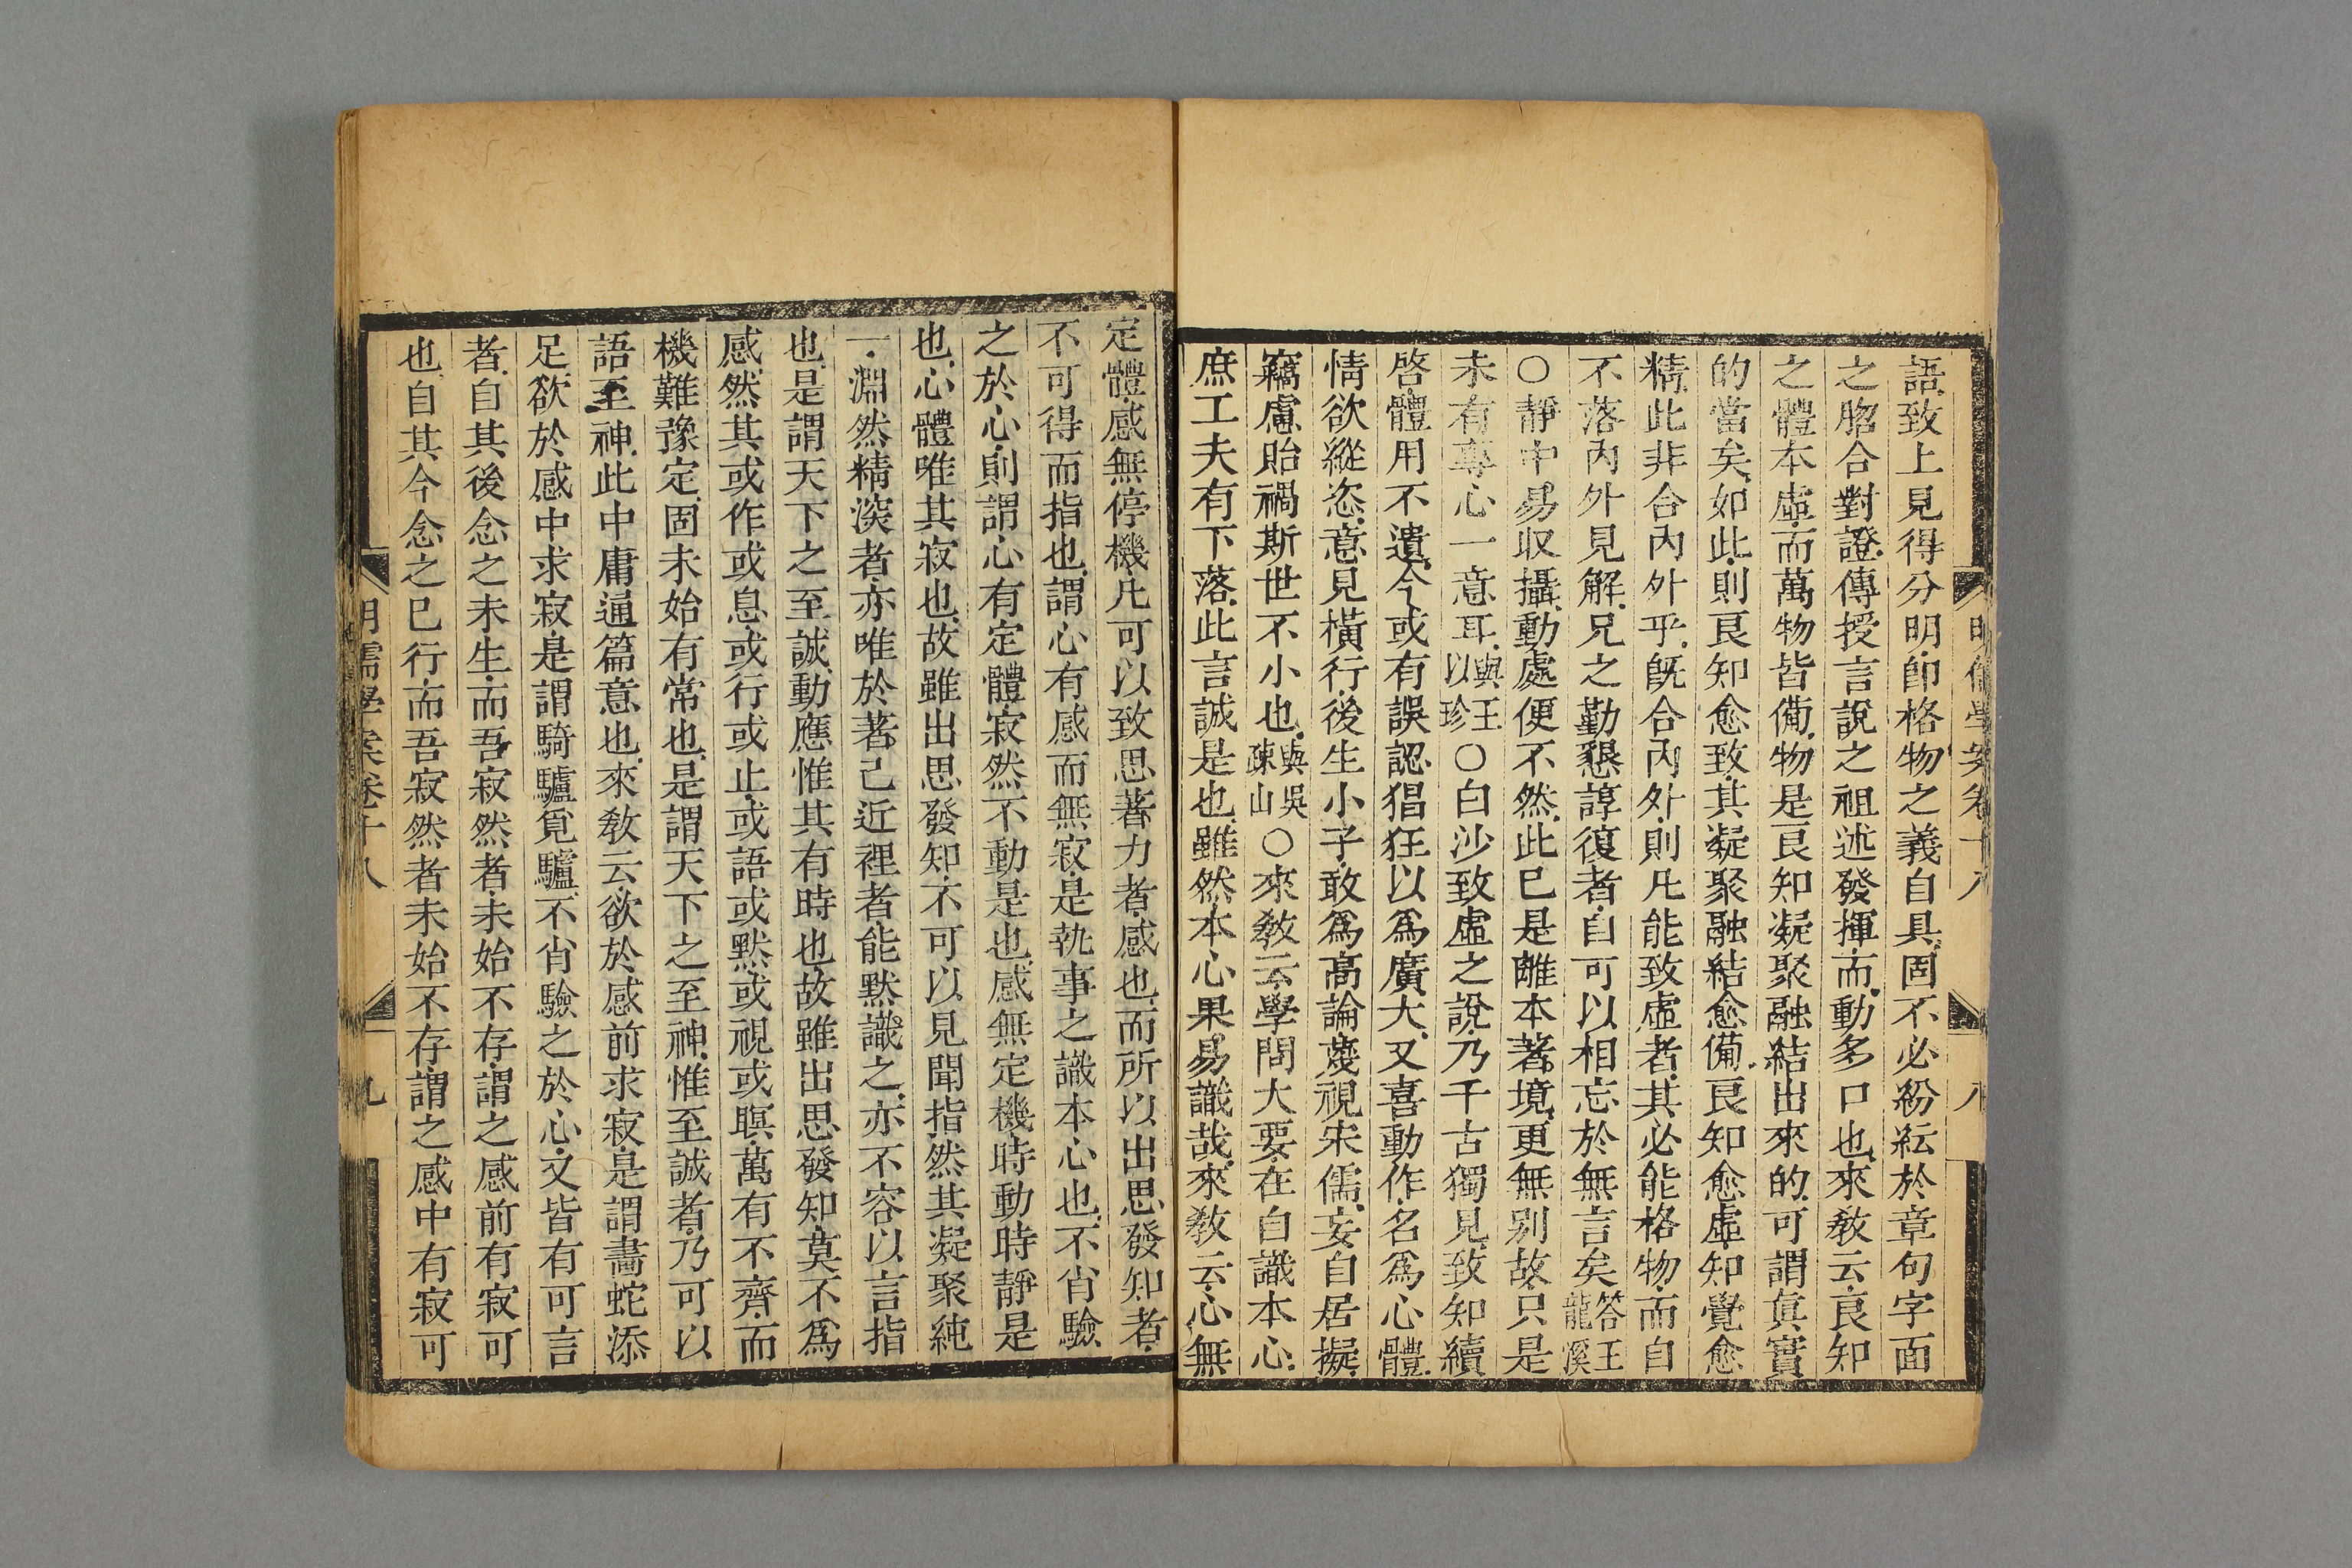 語致上見得分明卽格物之義自具固不必紛紜於章句字面
之脗合對證傳授言說之祖述發揮而動多口也來敎云良知
之體本虛而萬物皆備物是良知凝聚融結出來的可謂眞實
的當矣如此則良知愈致其凝聚融結愈備良知愈虛知覺愈
精此非合內外乎旣合內外則凡能致虛者其必能格物而自
不落內外見解兄之勤懇諄復者自可以相忘於無言矣答王龍溪
○靜中易収攝動處便不然此已是離本著境更無別故只是
未有專心一意耳與王以珍○白沙致虛之說乃千古獨見致知續
啓體用不遺今或有誤認猖狂以爲廣大又喜動作名爲心體
情欲縱恣意見橫行後生小子敢爲高論蔑視宋儒妄自居擬
竊慮貽禍斯世不小也與吳疎山○來敎云學問大要在自識本心
庶工夫有下落此言誠是也雖然本心果易識哉來敎云心無
定體感無停機凡可以致思著力者感也而所以出思發知者
不可得而指也謂心有感而無寂是執事之識本心也不肖驗
之於心則謂心有定體寂然不動是也感無定機時動時靜是
也心體唯其寂也故雖出思發知不可以見聞指然其凝聚純
一淵然精深者亦唯於著己近裡者能默識之亦不容以言指
也是謂天下之至誠動應惟其有時也故雖出思發知莫不爲
感然其或作或息或行或止或語或默或視或瞑萬有不齊而
機難豫定固未始有常也是謂天下之至神惟至誠者乃可以
語至神此中庸通篇意也來敎云欲於感前求寂是謂畵蛇添
足欲於感中求寂是謂騎驢覓驢不肖驗之於心又皆有可言
者自其後念之未生而吾寂然者未始不存謂之感前有寂可
也自其今念之已行而吾寂然者未始不存謂之感中有寂可
明儒學案卷十八
九